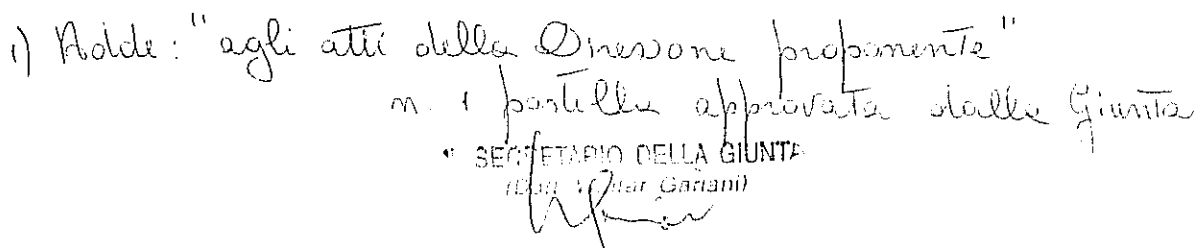 1) Adde: "agli atti della Direzione proponente"
n. 1 postilla approvata dalla Giunta
SEGRETARIO DELLA GIUNTA
(Dott. Gariani)